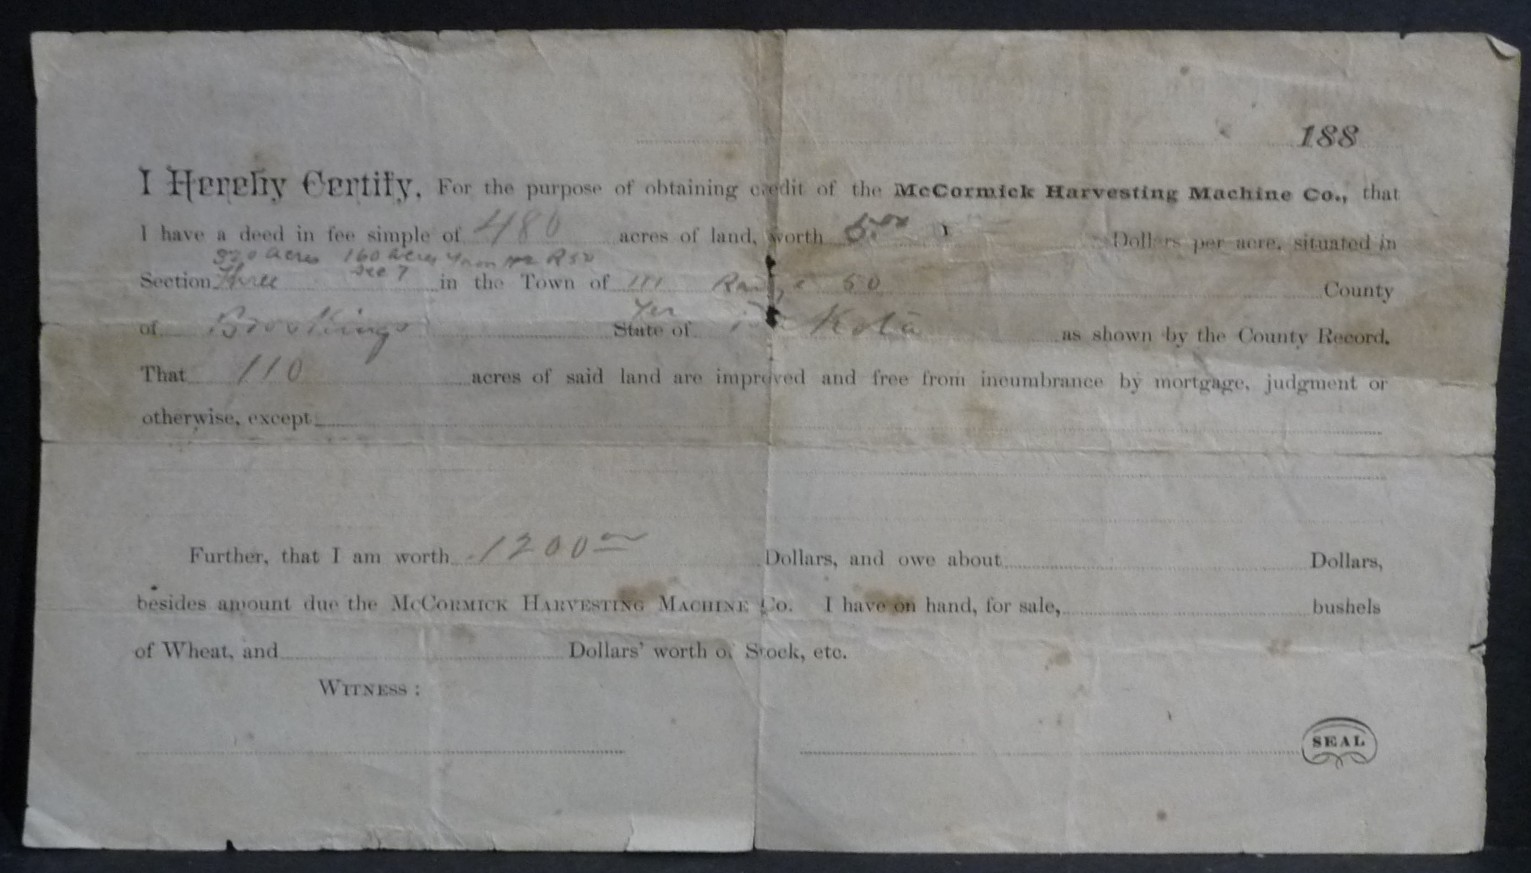 188
I Hereby Certify, For the purpose of obtaining credit of the McCormick Harvesting Machine Co., that
I have a deed in fee simple of 480 acres of land, worth 5.00 Dollars per acre, situated in
320 acres 160 acres R 50
Section Three Sec 7 in the Town of 111 Range 50 County
of Brookings State of Ter Dakota as shown by the County Record.
That 110 acres of said land are improved and free from incumbrance by mortgage, judgment or
otherwise, except
Further, that I am worth 1200 Dollars, and owe about Dollars,
besides amount due the McCormick Harvesting Machine Co. I have on hand, for sale, bushels
of Wheat, and Dollars' worth of Stock, etc.
Witness :
SEAL